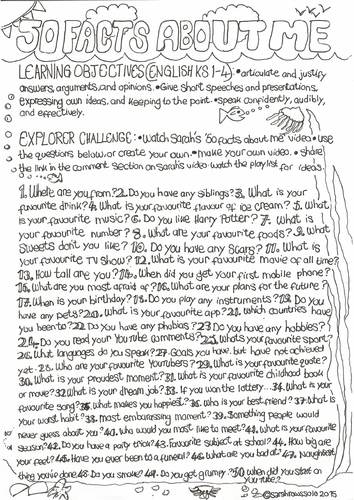 50 FACTS ABOUT ME
LEARNING OBJECTIVES (ENGLISH KS 1-4): •articulate and justify
answers, arguments, and opinions. •Give short speeches and presentations,
expressing own ideas, and keeping to the point. •speak confidently, audibly,
and effectively.
EXPLORER CHALLENGE: •Watch Sarah's '50 facts about me' video •use
the questions below, or create your own. •make your own video. •share
the link in the comment section on Sarah's video. watch the playlist for ideas.
1. Where are you from? 2. Do you have any siblings? 3. What is your
favourite drink? 4. What is your favourite flavour of ice cream? 5. What
is your favourite music? 6. Do you like Harry Potter? 7. What is
your favourite number? 8. What are your favourite foods? 9. What
Sweets don't you like? 10. Do you have any Scars? 11. What is
your favourite TV show? 12. What is your favourite movie of all time?
13. How tall are you? 14. When did you get your first mobile phone?
15. What are you most afraid of? 16. What are your plans for the future?
17. When is your birthday? 18. Do you play any instruments? 19. Do you
have any pets? 20. What is your favourite app? 21. which countries have
you been to? 22. Do you have any phobias? 23 Do you have any hobbies?
24. Do you read your YouTube comments? 25. Whats your favourite sport?
26. What languages do you speak? 27. Goals you have, but have not achieved
yet. 28. Who are your favourite YouTubers? 29. What is your favourite quote?
30. What is your proudest moment? 31. What is your favourite childhood book
or movie? 32. What is your dream job? 33. If you won the lottery... 34. What is your
favourite song? 35. What makes you happiest? 36. Who is your best friend? 37. What is
your worst habit? 38. Most embarrassing moment? 39. Something people would
never guess about you? 40. who would you most like to meet? 41. What is your favourite
season? 42. Do you have a party trick? 43. Favourite subject at school? 44. How big are
your feet? 45. Have you ever been to a funeral? 46. What are you bad at? 47. Naughtiest
thing you've done. 48. Do you smoke? 49. Do you get grumpy? 50 when did you start on
YouTube?
©sarahrawsSolo 2015